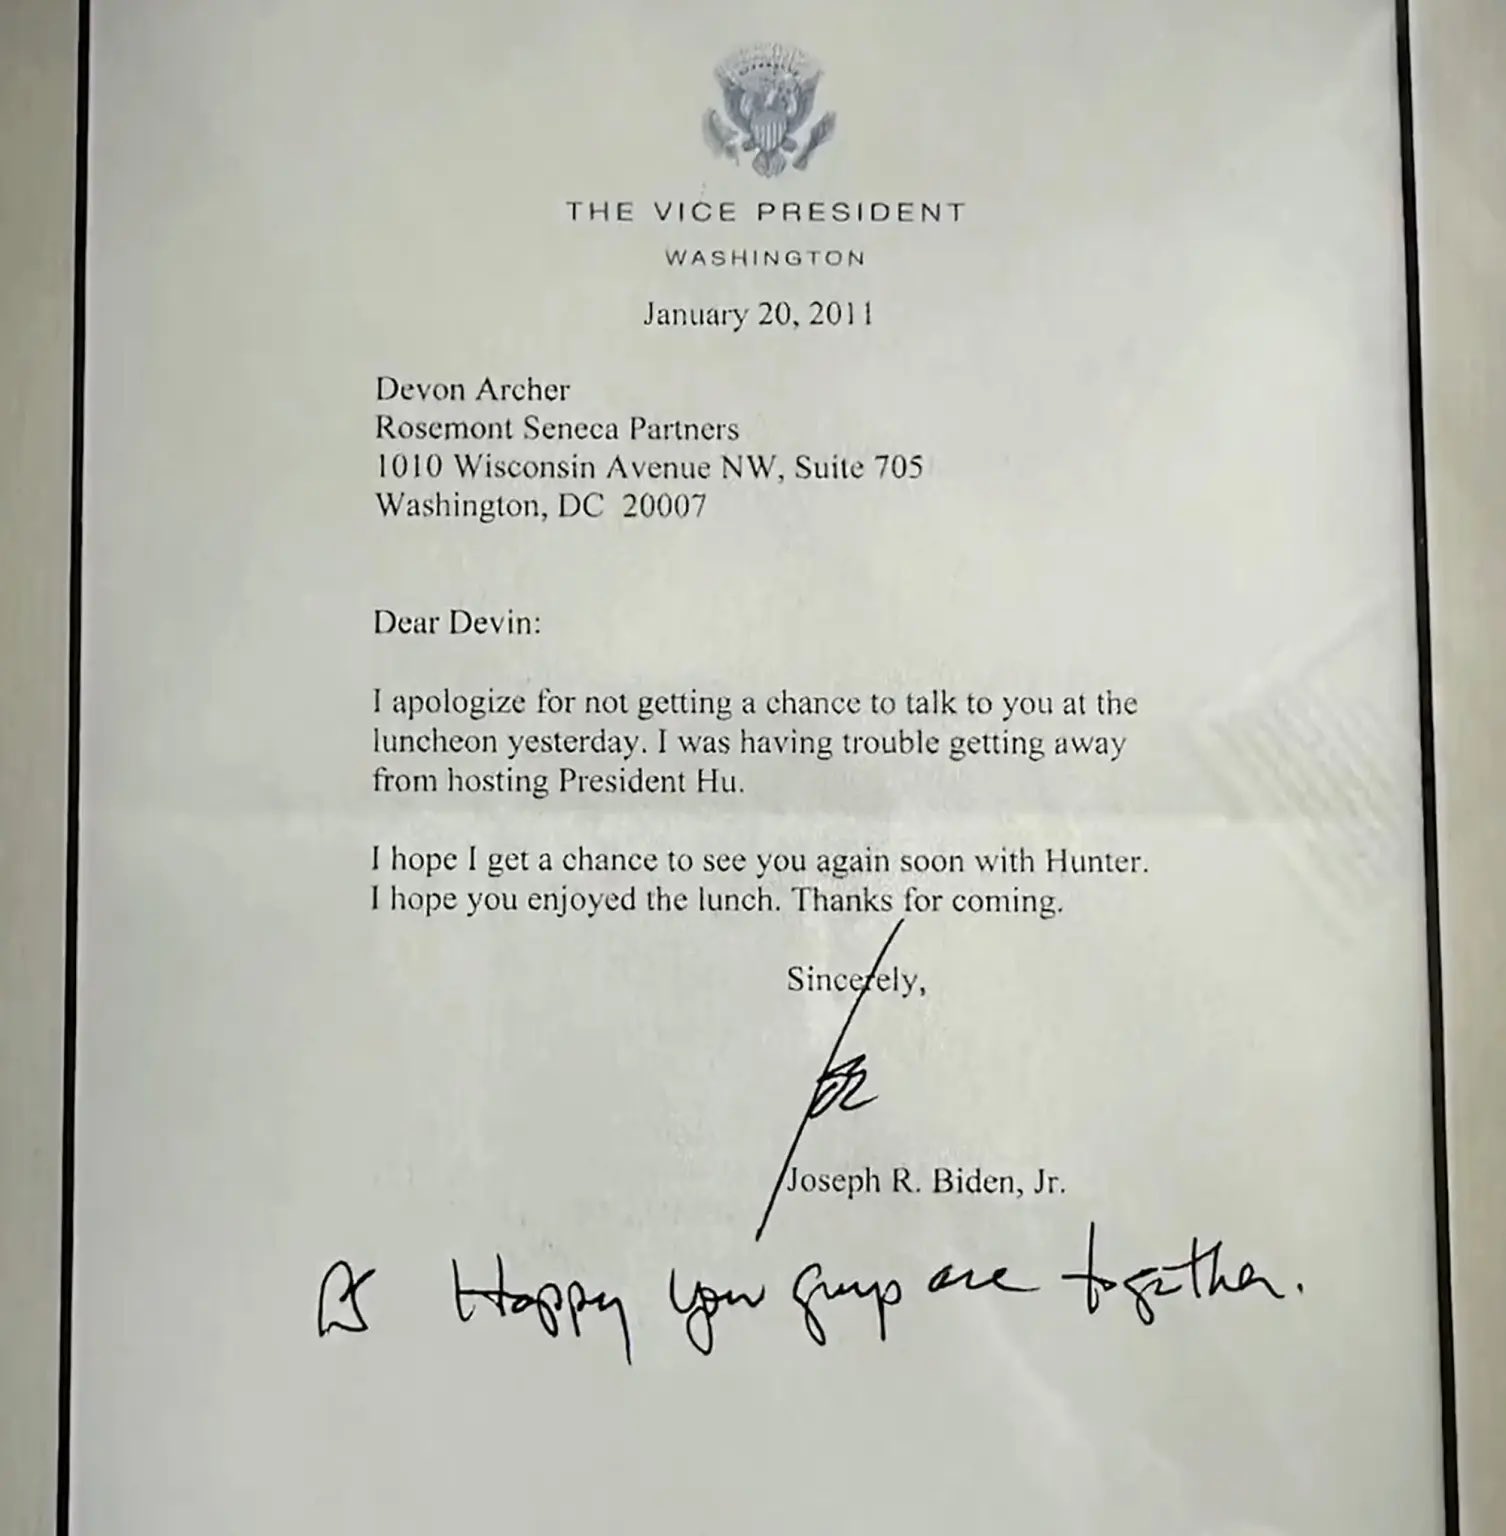 THE VICE PRESIDENT
WASHINGTON
January 20, 2011
Devon Archer
Rosemont Seneca Partners
1010 Wisconsin Avenue NW, Suite 705
Washington, DC 20007
Dear Devin:
I apologize for not getting a chance to talk to you at the
luncheon yesterday. I was having trouble getting away
from hosting President Hu.
I hope I get a chance to see you again soon with Hunter.
I hope you enjoyed the lunch. Thanks for coming.
Sincerely,
Joseph R. Biden, Jr.
PS Happy you guys are together.